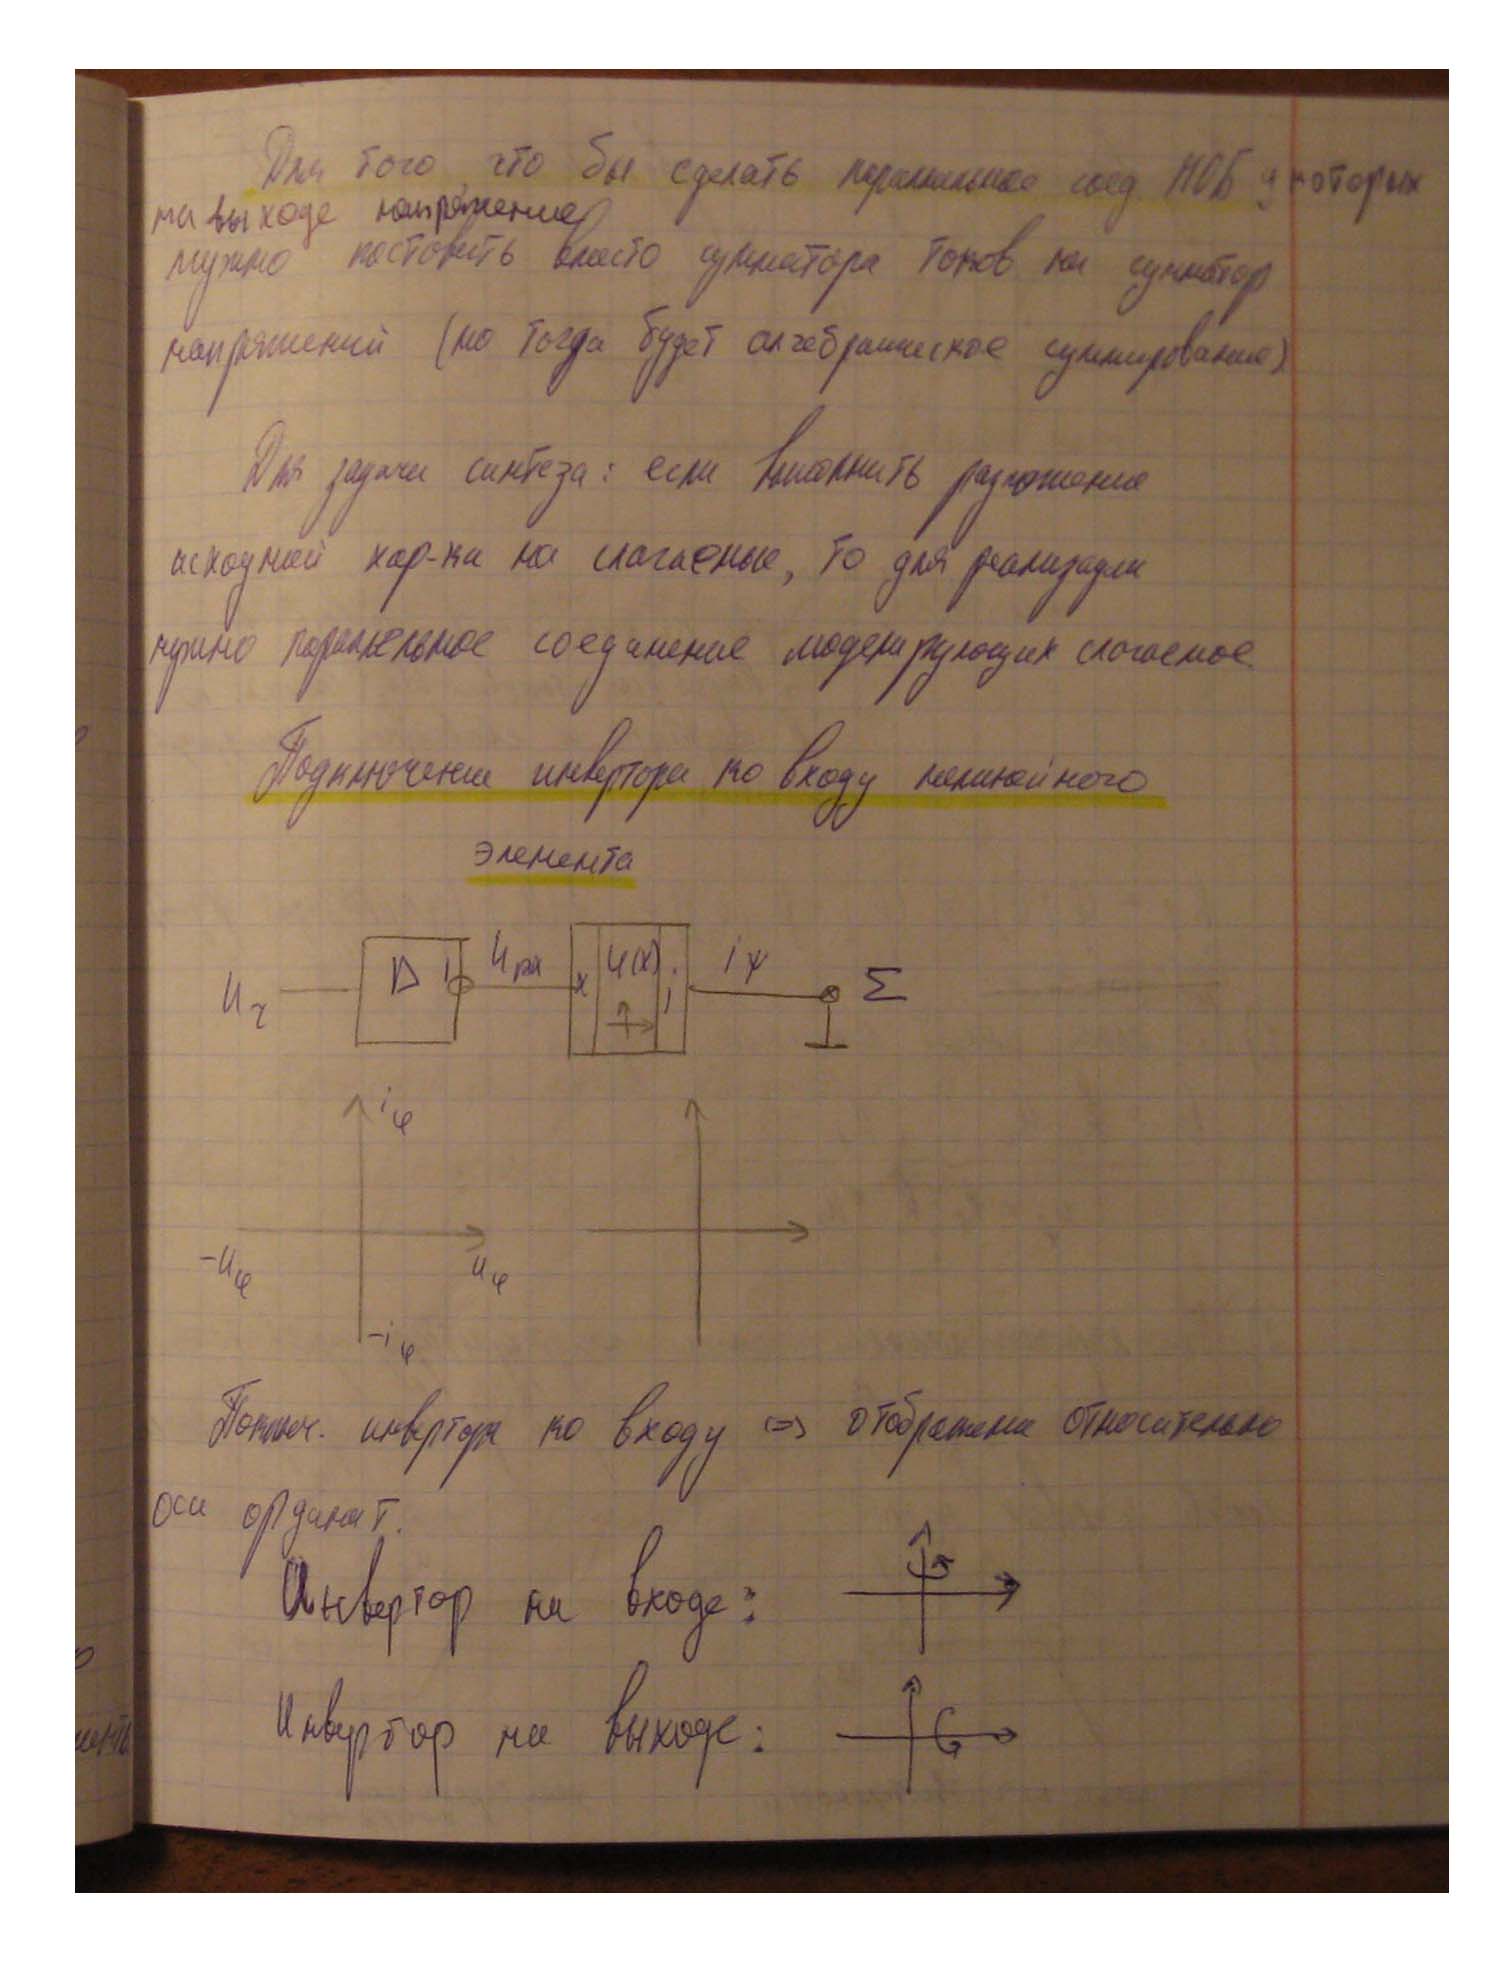 Для того что бы сделать параллельное соед. НОБ у которых
на выходе напряжение
нужно поставить вместо сумматора токов на сумматор
напряжений (но тогда будет алгебраическое суммирование)
Для задачи синтеза: если выполнить разложение
исходной хар-ки на слагаемые, то для реализации
нужно параллельное соединение моделирующих слагаемое
Подключение инвертора ко входу нелинейного
элемента
▷ 1 φ(x) i x Σ
iφ
-uφ uφ
-iφ
Подключ. инвертора ко входу => отображение относительно
оси ординат.
Инвертор на входе:
Инвертор на выходе: